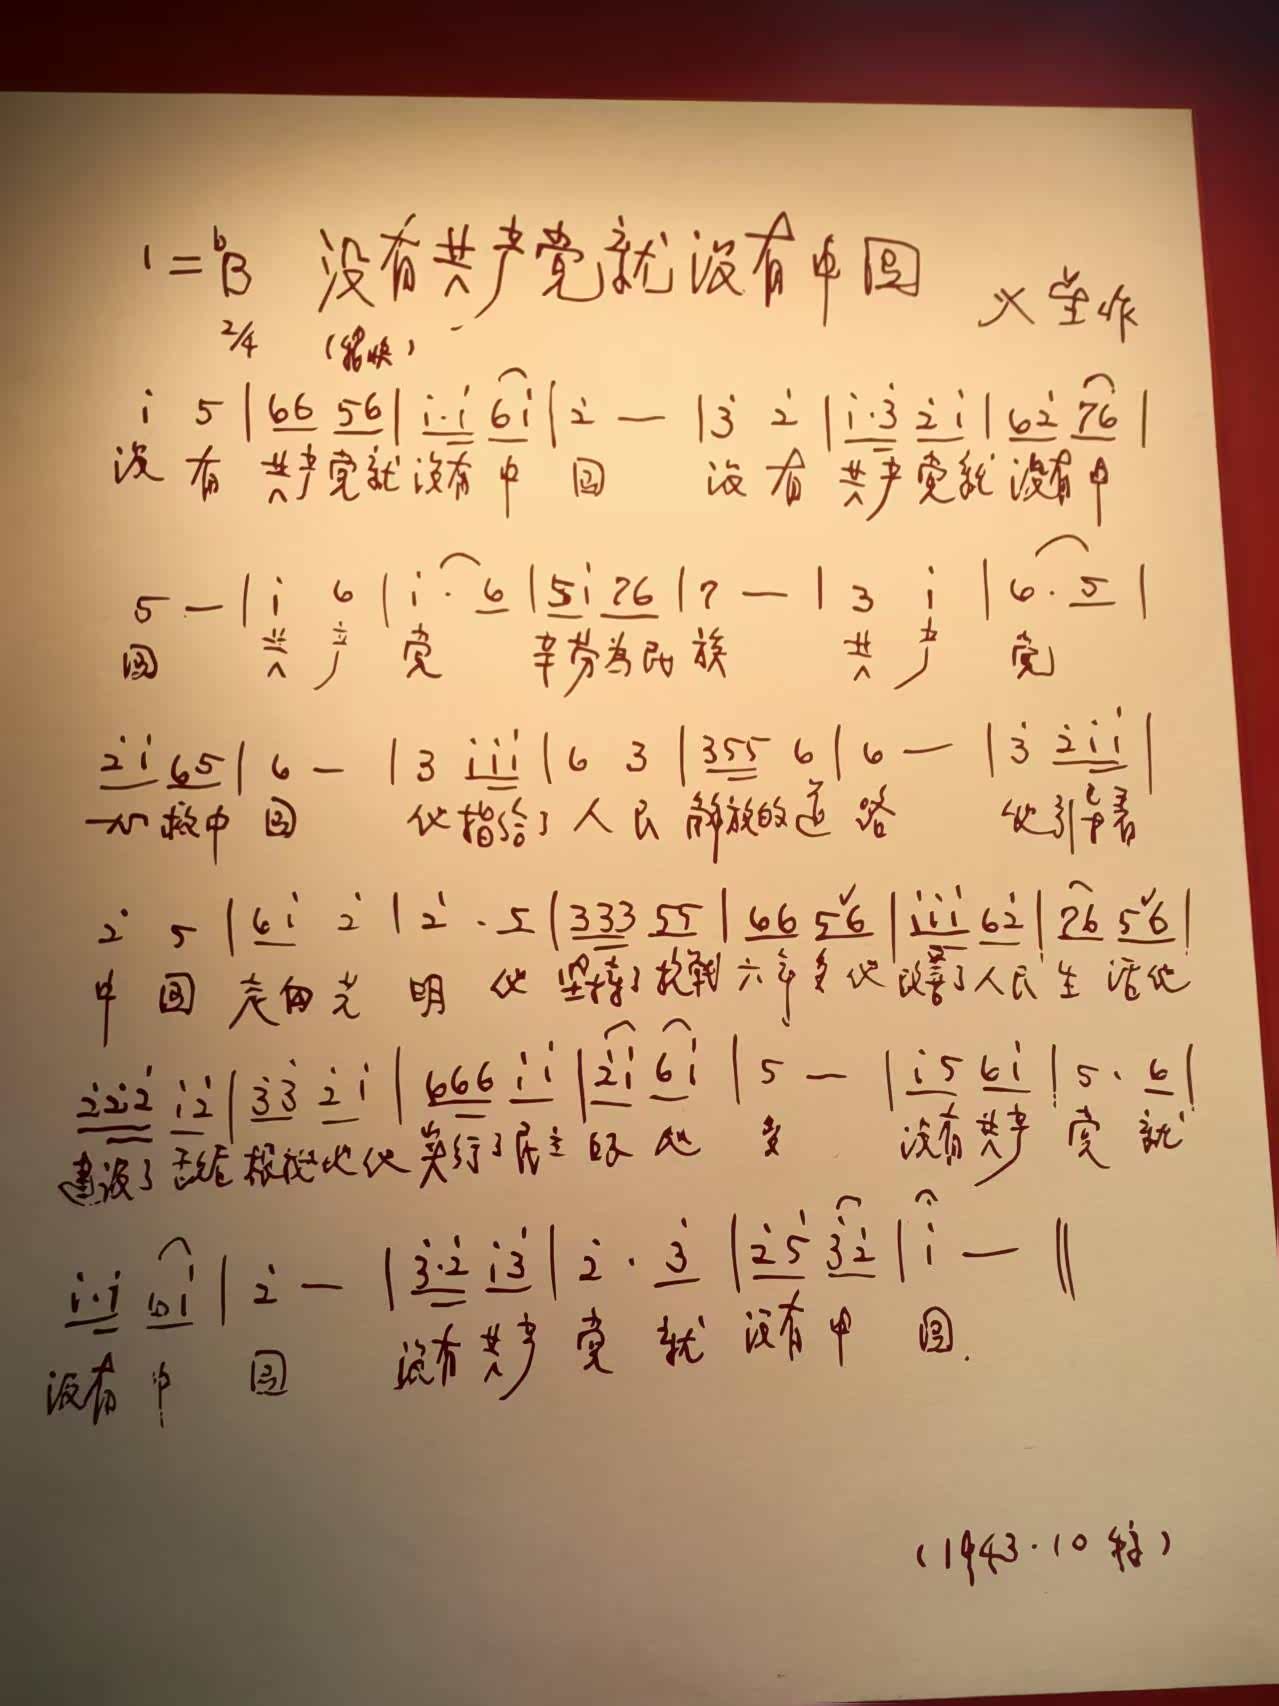 1=♭B 没有共产党就没有中国
2/4 (轻快) 火星作
i 5 | 66 56 | i·i 6i | 2̇ — | 3̇ 2̇ | i·3̇ 2̇i | 62̇ 76 |
没有 共产党就没有中国 没有共产党就没有中
5 — | i 6 | i· 6 | 5i 76 | 7 — | 3 i | 6· 5 |
国 共产党 辛劳为民族 共产党
2̇i 65 | 6 — | 3 iii | 6 3 | 355 6 | 6 — | 3̇ 2̇ii |
一心救中国 他指给了人民解放的道路 他引导着
2̇ 5 | 6i 2̇ | 2̇· 5 | 333 55 | 66 5ˇ6 | iii 62̇ | 76 5ˇ6 |
中国走向光明 他坚持了抗战六年多他改善了人民生活他
2̇2̇2̇ i2̇ | 3̇3̇ 2̇i | 666 ii | 2̇i 6i | 5 — | i5 6i | 5· 6 |
建设了敌后根据地他实行了民主好处多 没有共产党就
i·i 6i | 2̇ — | 3̇·2̇ i3̇ | 2̇· 3̇ | 2̇5 3̇2̇ | i — ‖
没有中国 没有共产党就没有中国.
(1943·10 稿)